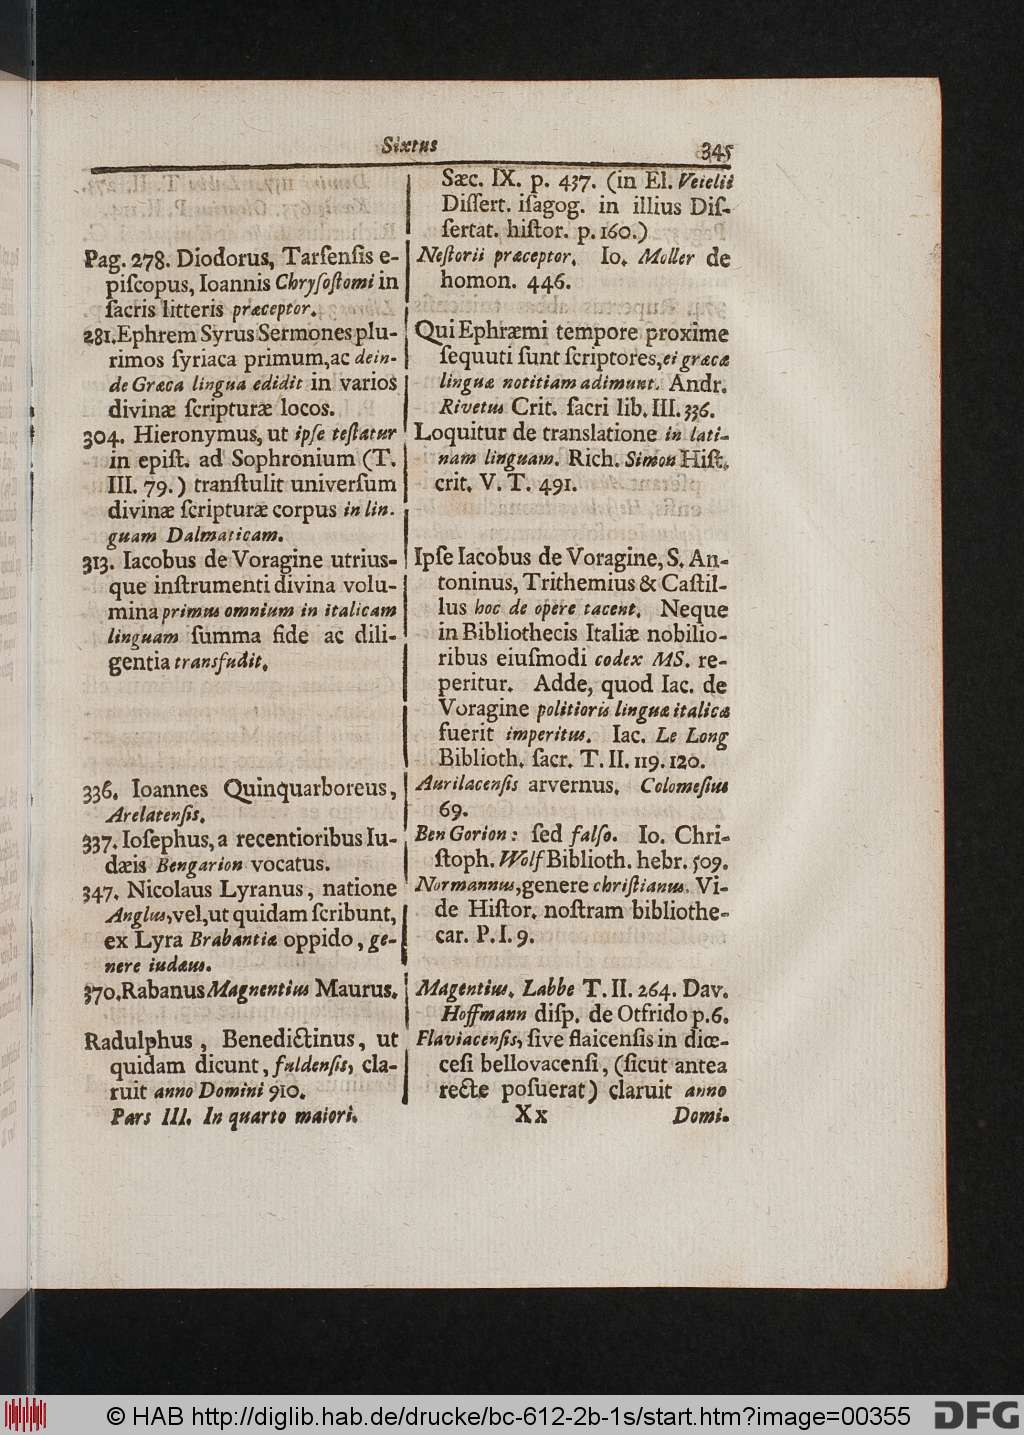 Sixtus 345
Sæc. IX. p. 437. (in El. Veielii
Diſſert. iſagog. in illius Diſ-
ſertat. hiſtor. p. 160.)
Pag. 278. Diodorus, Tarſenſis e-
piſcopus, Ioannis Chryſoſtomi in
ſacris litteris præceptor.
Neſtorii præceptor. Io. Moller de
homon. 446.
281. Ephrem Syrus Sermones plu-
rimos ſyriaca primum, ac dein-
de Græca lingua edidit in varios
divinæ ſcripturæ locos.
Qui Ephræmi tempore proxime
ſequuti ſunt ſcriptores, ei græcæ
linguæ notitiam adimunt. Andr.
Rivetus Crit. ſacri lib. III. 336.
304. Hieronymus, ut ipſe teſtatur
in epiſt. ad Sophronium (T.
III. 79.) tranſtulit univerſum
divinæ ſcripturæ corpus in lin.
guam Dalmaticam.
Loquitur de translatione in lati-
nam linguam. Rich. Simon Hiſt.
crit. V. T. 491.
313. Iacobus de Voragine utrius-
que inſtrumenti divina volu-
mina primus omnium in italicam
linguam ſumma fide ac dili-
gentia transfudit.
Ipſe Iacobus de Voragine, S. An-
toninus, Trithemius & Caſtil-
lus hoc de opere tacent. Neque
in Bibliothecis Italiæ nobilio-
ribus eiuſmodi codex MS. re-
peritur. Adde, quod Iac. de
Voragine politioris linguæ italicæ
fuerit imperitus. Iac. Le Long
Biblioth. ſacr. T. II. 119. 120.
336. Ioannes Quinquarboreus,
Arelatenſis.
Aurilacenſis arvernus. Colomeſius
69.
337. Ioſephus, a recentioribus Iu-
dæis Bengarion vocatus.
Ben Gorion: ſed falſo. Io. Chri-
ſtoph. Wolf Biblioth. hebr. 509.
347. Nicolaus Lyranus, natione
Anglus, vel, ut quidam ſcribunt,
ex Lyra Brabantiæ oppido, ge-
nere iudæus.
Normannus, genere chriſtianus. Vi-
de Hiſtor. noſtram bibliothe-
car. P. I. 9.
370. Rabanus Magnentius Maurus.
Magentius. Labbe T. II. 264. Dav.
Hoffmann diſp. de Otfrido p. 6.
Radulphus, Benedictinus, ut
quidam dicunt, fuldenſis, cla-
ruit anno Domini 910.
Flaviacenſis, ſive flaicenſis in diœ-
ceſi bellovacenſi, (ſicut antea
recte poſuerat) claruit anno
Pars III. In quarto maiori. Xx Domi-
© HAB http://diglib.hab.de/drucke/bc-612-2b-1s/start.htm?image=00355
DFG